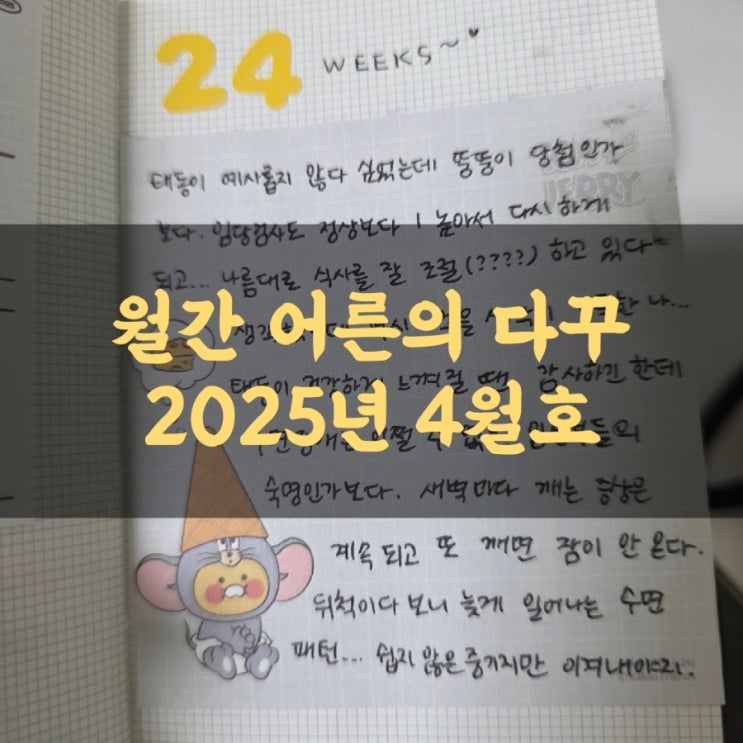 24 WEEKS~
태동이 예사롭지 않다 싶었는데 뚱뚱이 당첨인가
JERRY
보다. 임당검사도 정상보다 1 높아서 다시 하게
되고... 나름대로 식사를 잘 조절(????) 하고 있다
월간 어른의 다꾸
나...
태동이 건강하게 느껴질 때 감사하긴 한데
2025년 4월호
숙명인가보다. 새벽마다 깨는 증상은
계속 되고 또 깨면 잠이 안 온다.
뒤척이다 보니 늦게 일어나는 수면
패턴... 쉽지 않은 중기지만 이겨내야지.